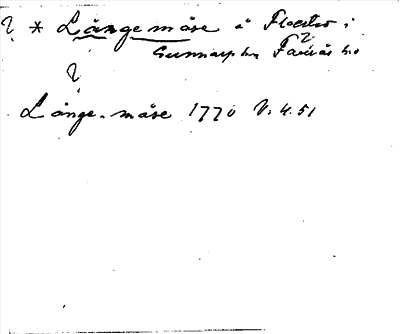 ? * Långemåse å Floestro i
Gunnarp sn Faurås hd
?
Långe-måse 1770 V. 4. 51